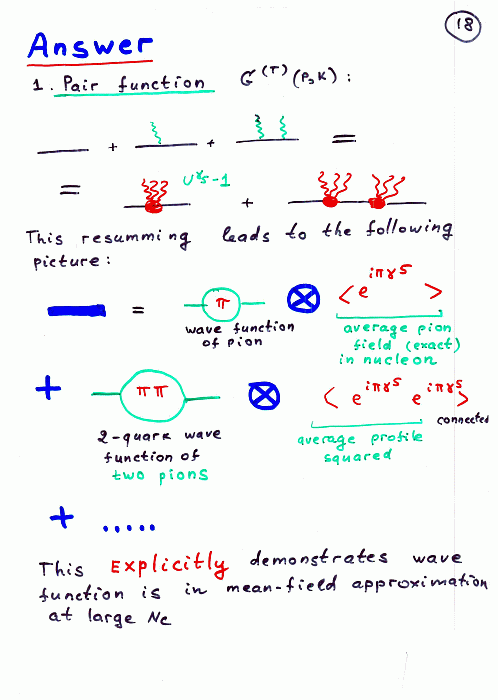 18
Answer
1. Pair function G^(T)(P,K) :
+ + =
= U^γ5-1 +
This resumming leads to the following
picture:
= π ⊗ < e^iπγ5 >
wave function
of pion
average pion
field (exact)
in nucleon
+ ππ ⊗ < e^iπγ5 e^iπγ5 > connected
2-quark wave
function of
two pions
average profile
squared
+ .....
This EXplicitly demonstrates wave
function is in mean-field approximation
at large Nc